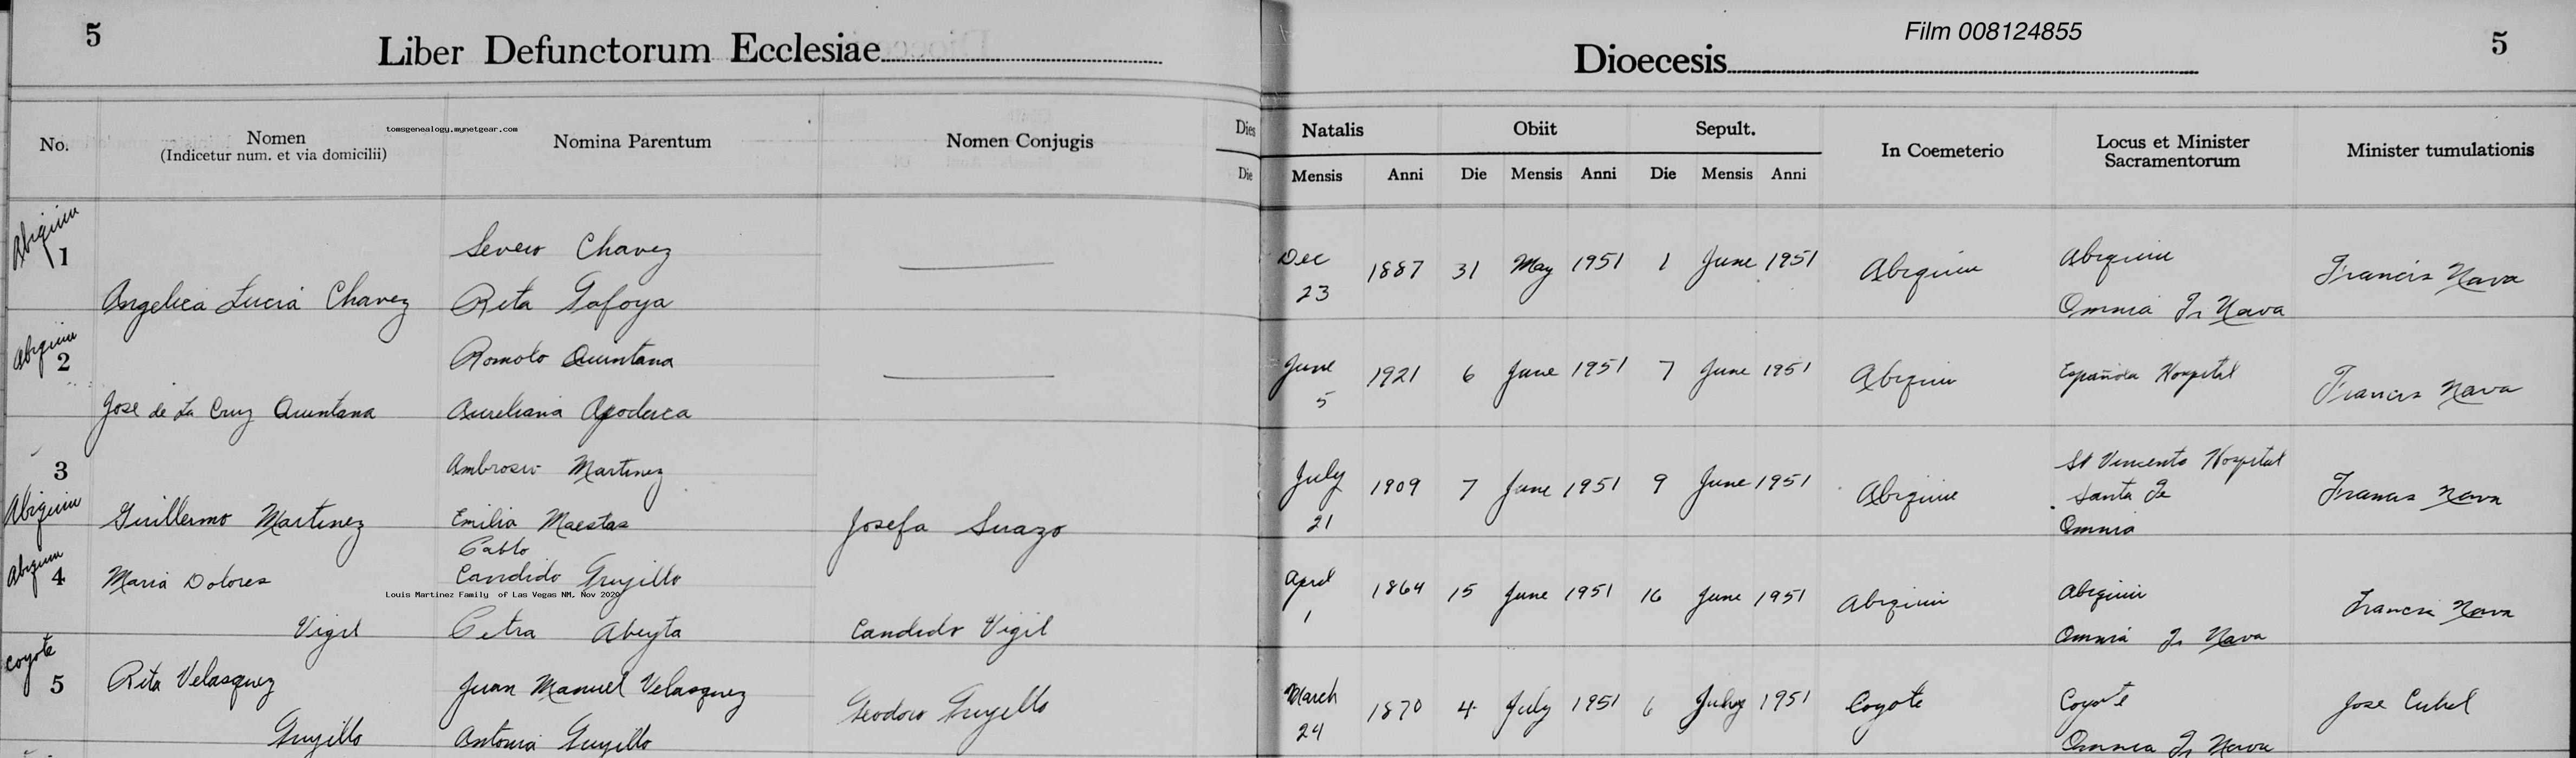 5
Liber Defunctorum Ecclesiae
Dioecesis
Film 008124855
5
No.
Nomen
(Indicetur num. et via domicilii)
tomsgenealogy.mynetgear.com
Nomina Parentum
Nomen Conjugis
Dies Natalis
Die Mensis Anni
Obiit
Die Mensis Anni
Sepult.
Die Mensis Anni
In Coemeterio
Locus et Minister
Sacramentorum
Minister tumulationis
Abiquiu
1
Angelica Lucia Chavez
Severo Chavez
Rita Tafoya
Dec
23
1887 31 May 1951 1 June 1951
Abiquiu
Abiquiu
Omnia Fr Nava
Francis Nava
Abiquiu
2
Jose de La Cruz Quintana
Romolo Quintana
Aureliana Apodaca
June
5
1921 6 June 1951 7 June 1951
Abiquiu
Española Hospital
Francis Nava
3
Abiquiu
Guillermo Martinez
Ambrosio Martinez
Emilia Maestas
Josefa Suazo
July
21
1909 7 June 1951 9 June 1951
Abiquiu
St Vincents Hospital
Santa Fe
Omnia
Francis Nava
Abiquiu
4
Maria Dolores
Vigil
Pablo
Candido Trujillo
Louis Martinez Family of Las Vegas NM, Nov 2020
Petra Abeyta
Candido Vigil
April
1
1864 15 June 1951 16 June 1951
Abiquiu
Abiquiu
Omnia Fr Nava
Francis Nava
Coyote
5
Rita Velasquez
Trujillo
Juan Manuel Velasquez
Antonia Trujillo
Teodoro Trujillo
March
24
1870 4 July 1951 6 July 1951
Coyote
Coyote
Omnia Fr Nava
Jose